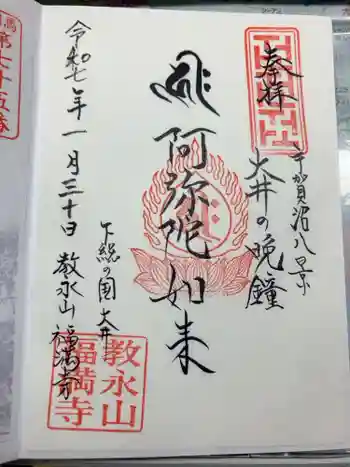 奉拝
手賀沼八景
大井の晩鐘
阿弥陀如来
下総の国 大井
教永山 福満寺
令和七年一月三十日
教永山
福満寺
第七十五番